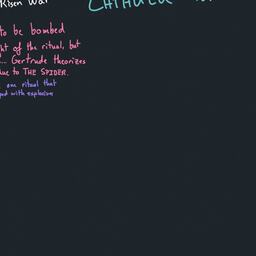 Risen War
to be bombed
ht of the ritual, but
... Gertrude theorizes
due to THE SPIDER.
one ritual that
ped with explosive